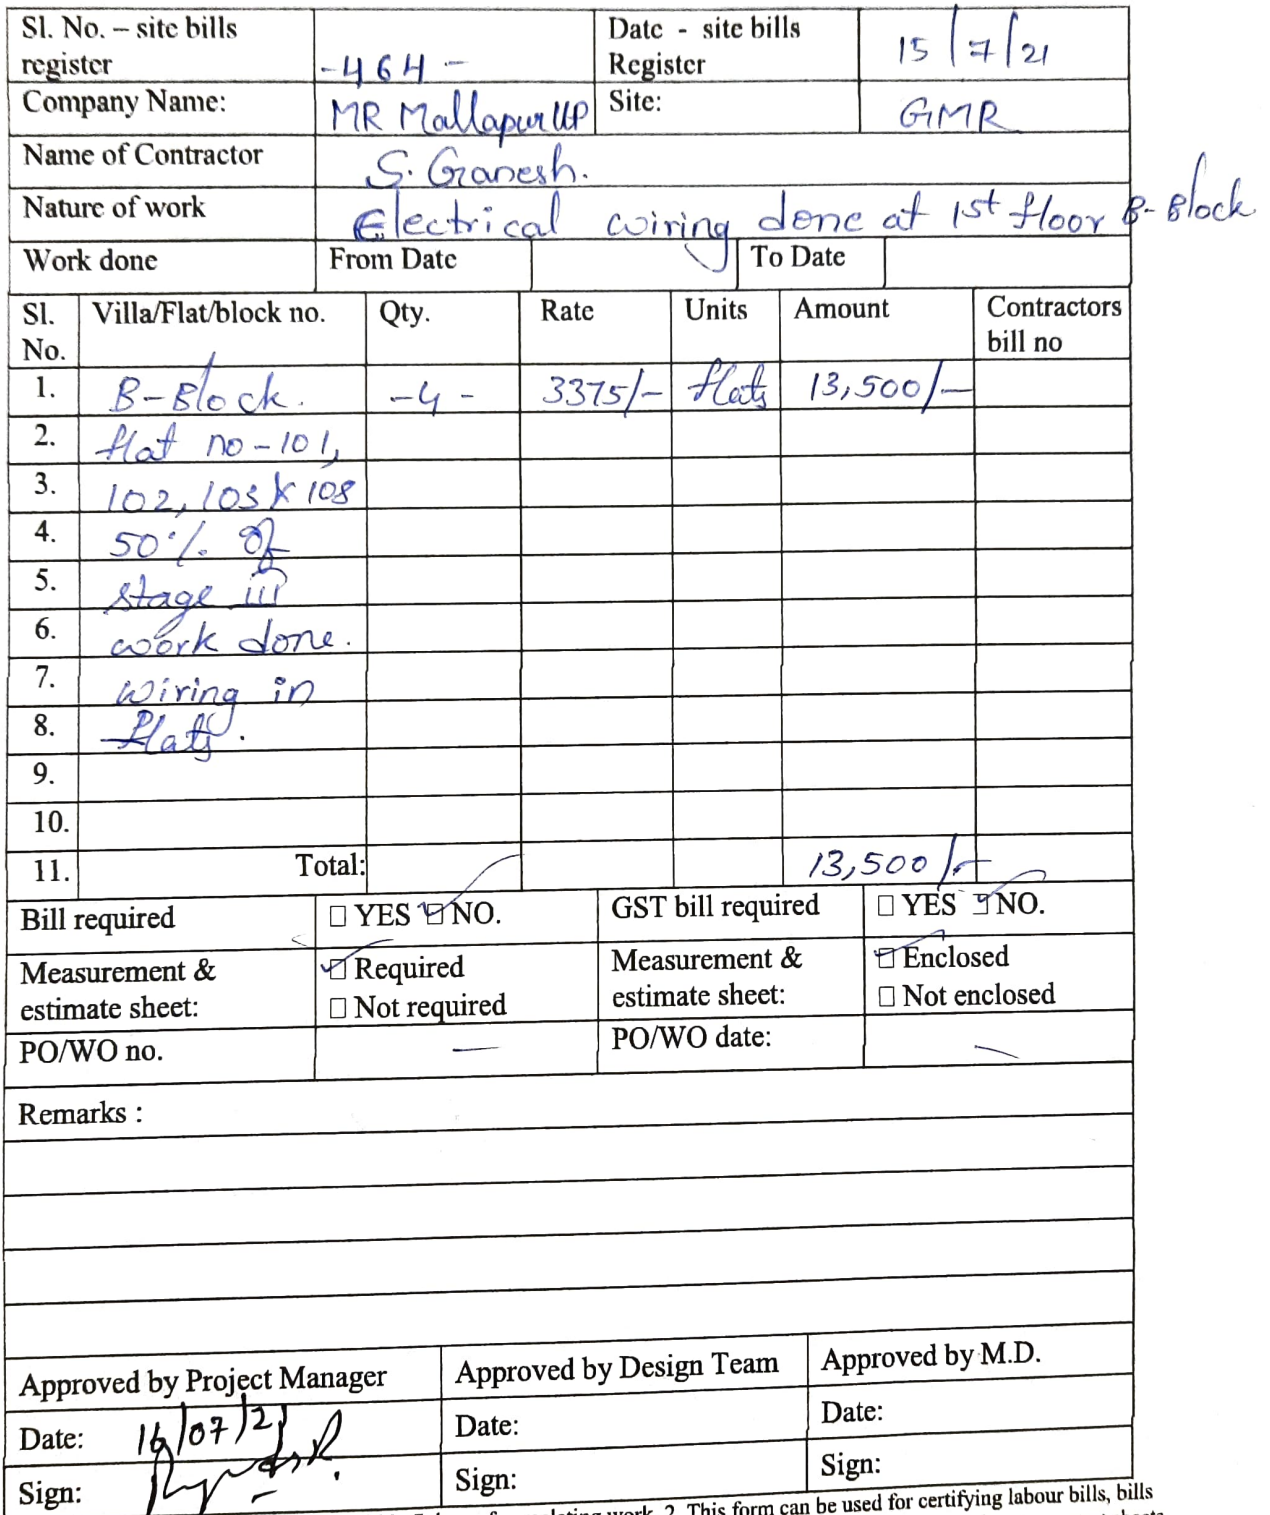 Sl. No. – site bills register -464- Date - site bills Register 15/7/21
Company Name: MR Mallapur LLP Site: GMR
Name of Contractor S. Ganesh.
Nature of work Electrical wiring done at 1st floor B-Block
Work done From Date To Date
Sl. No. Villa/Flat/block no. Qty. Rate Units Amount Contractors bill no
1. B-Block. -4- 3375/- flats 13,500/-
2. flat no-101,
3. 102, 103 & 108
4. 50% of
5. stage III
6. work done.
7. wiring in
8. flats.
9.
10.
11. Total: 13,500/-
Bill required YES NO. GST bill required YES NO.
Measurement & estimate sheet: Required Not required Measurement & estimate sheet: Enclosed Not enclosed
PO/WO no. — PO/WO date: —
Remarks :
Approved by Project Manager Approved by Design Team Approved by M.D.
Date: 16/07/21 Date: Date:
Sign: Sign: Sign:
work. 2. This form can be used for certifying labour bills, bills